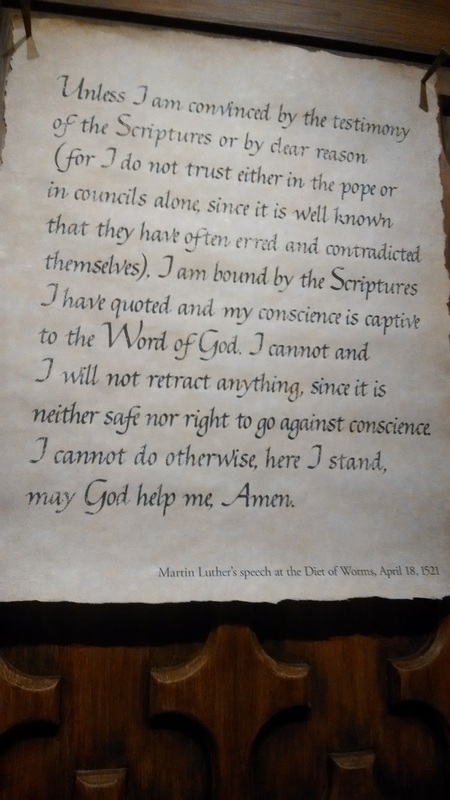 Unless I am convinced by the testimony
of the Scriptures or by clear reason
(for I do not trust either in the pope or
in councils alone, since it is well known
that they have often erred and contradicted
themselves), I am bound by the Scriptures
I have quoted and my conscience is captive
to the Word of God. I cannot and
I will not retract anything, since it is
neither safe nor right to go against conscience.
I cannot do otherwise, here I stand,
may God help me, Amen.
Martin Luther's speech at the Diet of Worms, April 18, 1521